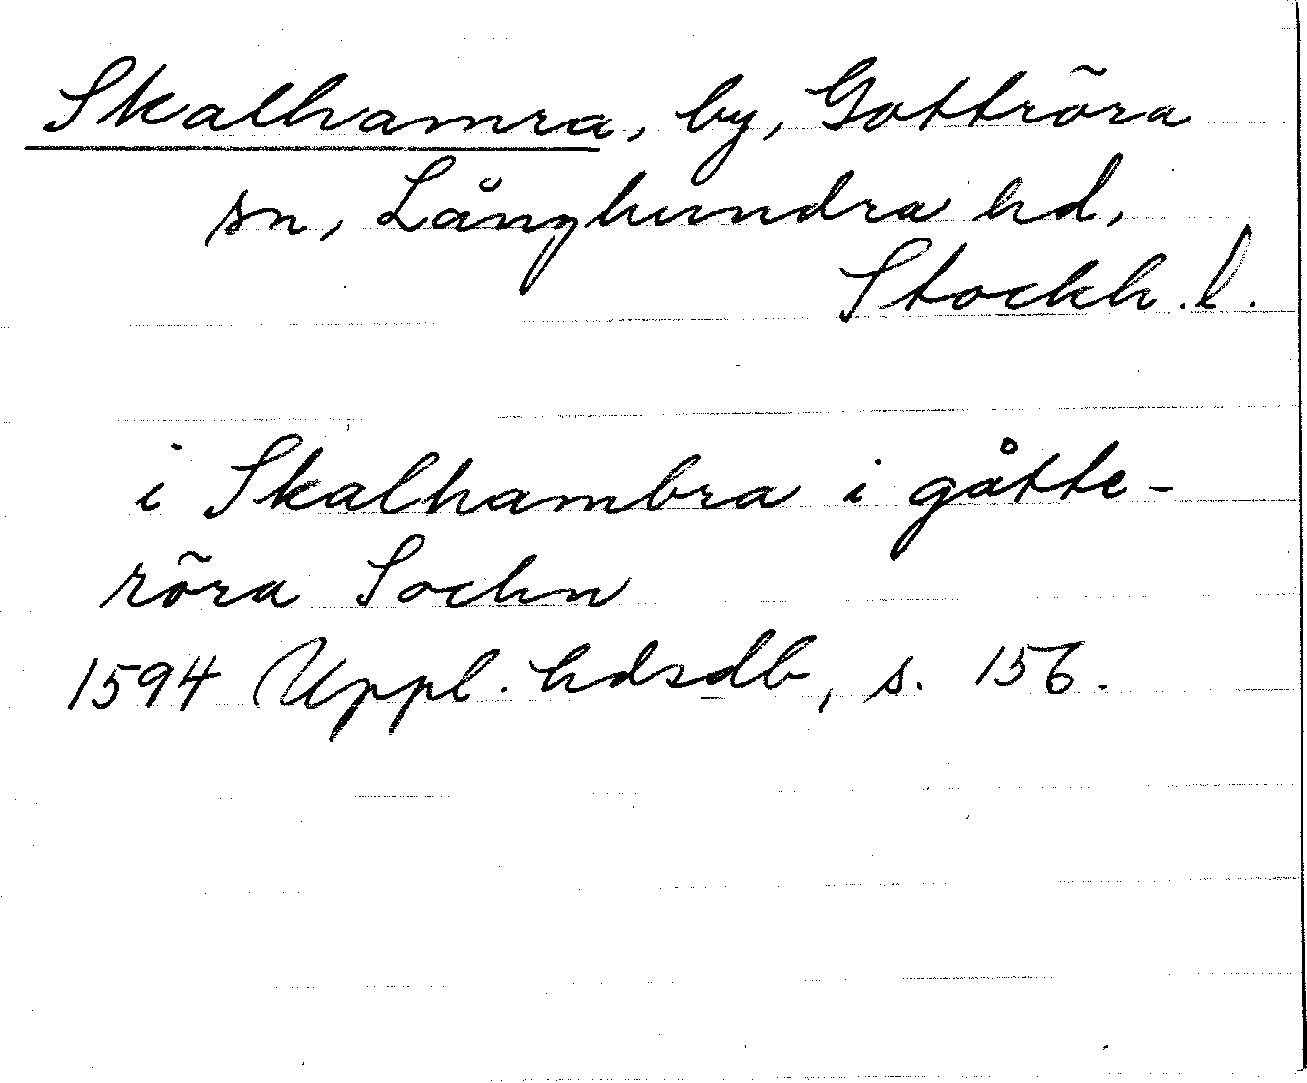 Skalhamra, by, Gottröra
sn, Långhundra hd,
Stockh. l.
i Skalhambra i gåtte-
röra Sochn
1594 Uppl. hdsdb, s. 156.